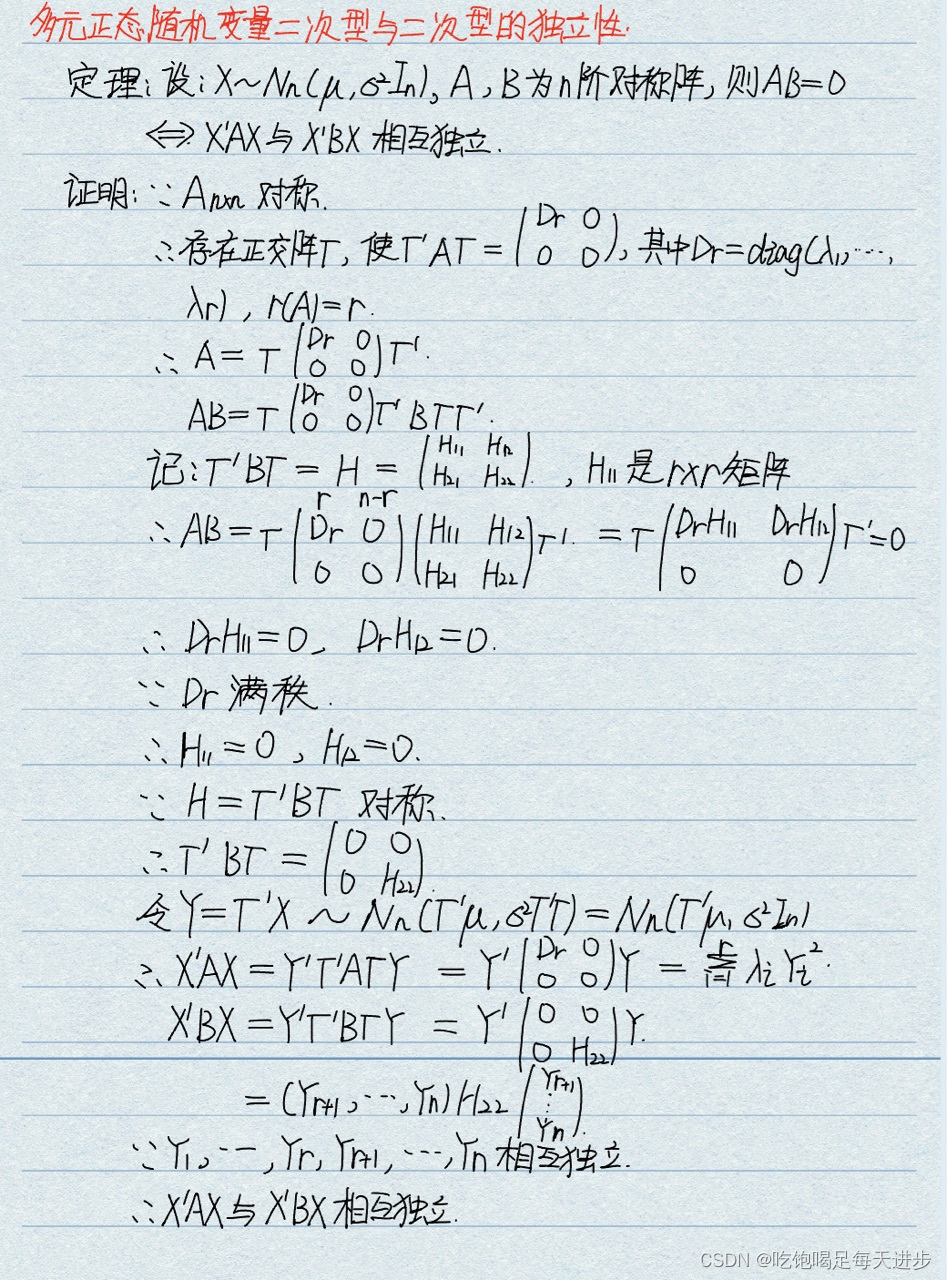 多元正态随机变量二次型与二次型的独立性.
定理: 设: X~Nn(μ, σ²In), A, B为n阶对称阵, 则AB=0
⟺ X'AX与X'BX 相互独立.
证明: ∵ An×n 对称.
∴存在正交阵T, 使T'AT = (Dr 0; 0 0), 其中Dr=diag(λ1, ⋯,
λr), r(A)=r.
∴ A= T (Dr 0; 0 0) T'.
AB= T (Dr 0; 0 0) T'BTT'.
记: T'BT = H = (H11 H12; H21 H22). , H11是r×r矩阵
r n-r
∴ AB= T (Dr 0; 0 0) (H11 H12; H21 H22) T'. = T (DrH11 DrH12; 0 0) T'=0
∴ DrH11=0, DrH12=0.
∵ Dr 满秩.
∴ H11=0, H12=0.
∵ H=T'BT 对称.
∴ T'BT = (0 0; 0 H22)
令Y=T'X ~ Nn(T'μ, σ²T'T)=Nn(T'μ, σ²In)
∴ X'AX=Y'T'ATY = Y' (Dr 0; 0 0) Y = Σ_{i=1}^{r} λiYi².
X'BX=Y'T'BTY = Y' (0 0; 0 H22) Y.
= (Yr+1, ⋯, Yn) H22 (Yr+1 ⋮ Yn).
∵ Y1, ⋯, Yr, Yr+1, ⋯, Yn 相互独立.
∴ X'AX与X'BX 相互独立.
CSDN @吃饱喝足每天进步